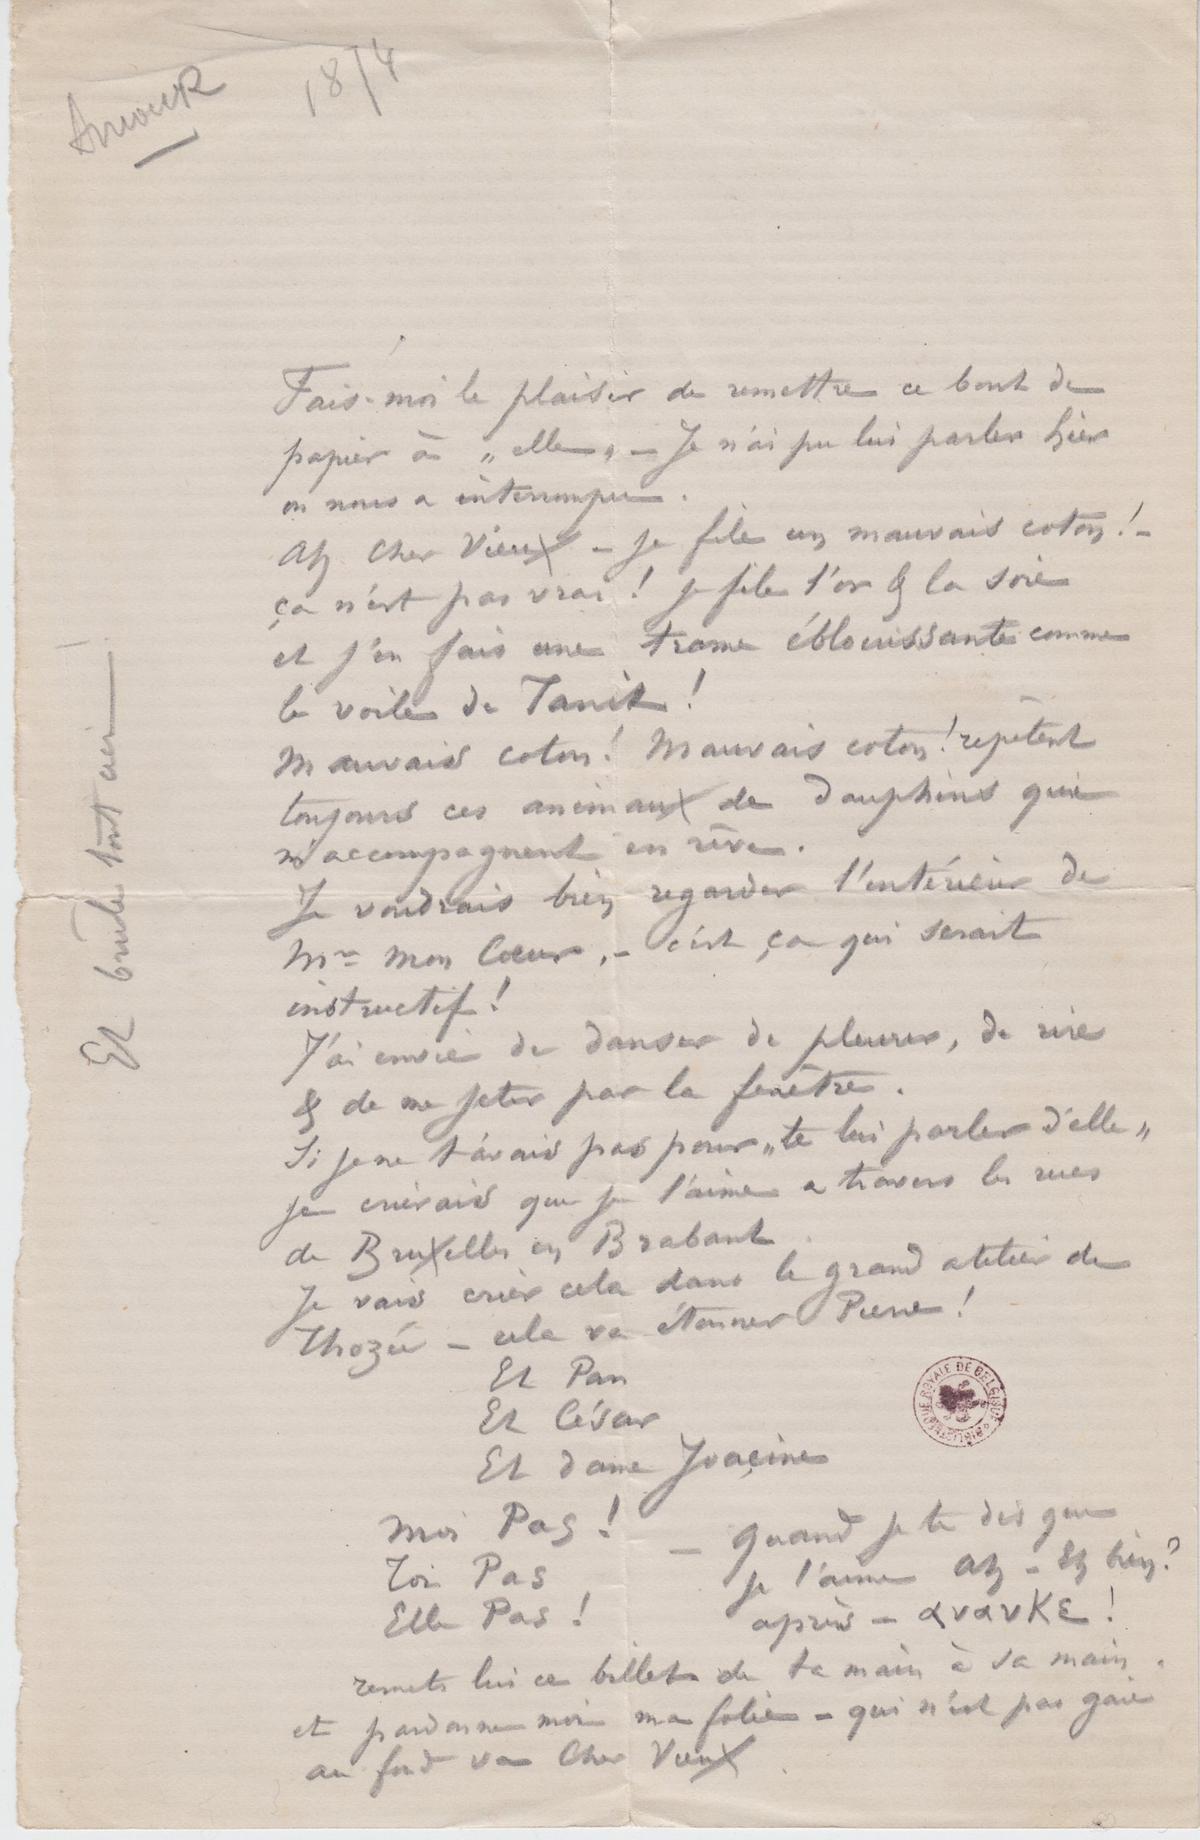 Amour
1874
Fais-moi le plaisir de remettre ce bout de
papier à „ elle „ – Je n'ai pu lui parler hier
on nous a interrompu.
Ah Cher Vieux – je file un mauvais coton ! –
ça n'est pas vrai ! je file l'or & la soie
et j'en fais une trame éblouissante comme
le voile de Tanit !
Mauvais coton ! Mauvais coton ! repètent
toujours ces animaux de dauphins qui
m'accompagnent en rêve.
Je voudrais bien regarder l'intérieur de
Mr mon Coeur, – c'est ça qui serait
instructif !
J'ai envie de danser de pleurer, de rire
& de me jeter par la fenêtre.
Si je ne t'avais pas pour „ te lui parler d'elle „
je crierais que je l'aime a travers les rues
de Bruxelles en Brabant.
Je vais crier cela dans le grand atelier de
Thozée – cela va étonner Pierre !
Et Pan
Et César
Et dame
Moi Pas !
Toi Pas
Elle Pas !
– Quand je te dis que
je l'aime Ah – Eh bien ?
après – ανανκε !
remets lui ce billet de ta main à sa main.
et pardonne moi ma folie – qui n'est pas gaie
au fond va Cher Vieux.
Et brule tout ceci !
BIBLIOTHEQUE ROYALE DE BELGIQUE